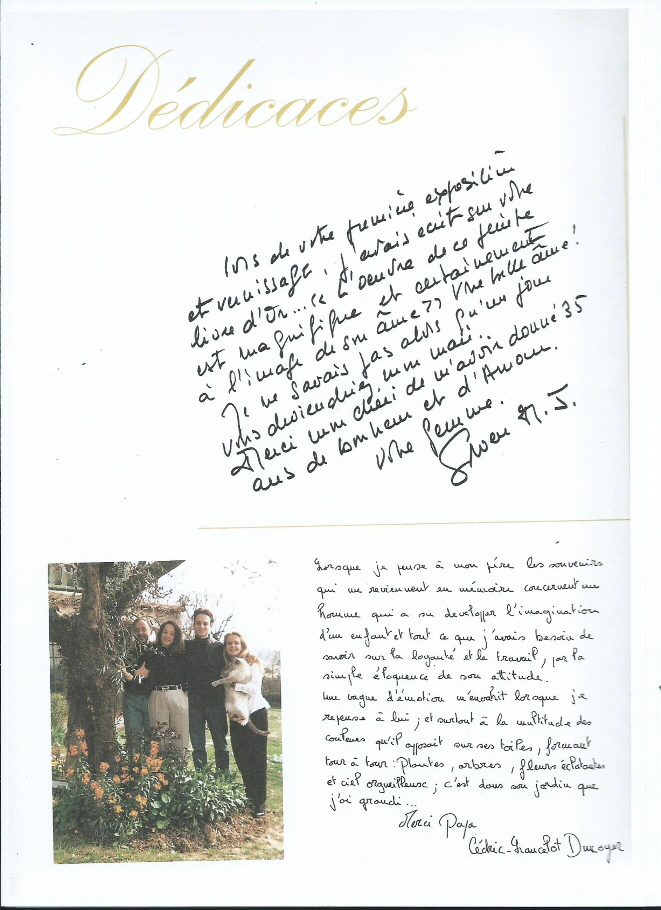 Dédicaces
lors de votre première exposition
et vernissage, j'avais écrit sur votre
livre d'Or... "L'oeuvre de ce peintre
est magnifique et certainement
à l'image de son âme" Une belle âme!
Je ne savais pas alors qu'un jour
vous deviendriez mon mari...
Merci mon chéri de m'avoir donné 35
ans de bonheur et d'Amour.
votre femme.
Lorsque je pense à mon père les souvenirs
qui me reviennent en mémoire concernent un
homme qui a su developper l'imagination
d'un enfant et tout ce que j'avais besoin de
savoir sur la loyauté et le travail, par la
simple éloquence de son attitude.
Une vague d'émotion m'envahit lorsque je
repense à lui ; et surtout à la multitude des
couleurs qu'il apposait sur ses toiles, formant
tour à tour : Plantes, arbres, fleurs éclatantes
et ciel orgueilleux ; c'est dans son jardin que
j'ai grandi...
Merci Papa
Cédric-